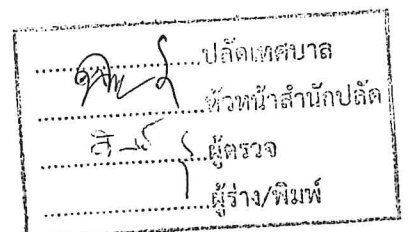 ....................ปลัดเทศบาล
....................หัวหน้าสำนักปลัด
....................ผู้ตรวจ
....................ผู้ร่าง/พิมพ์